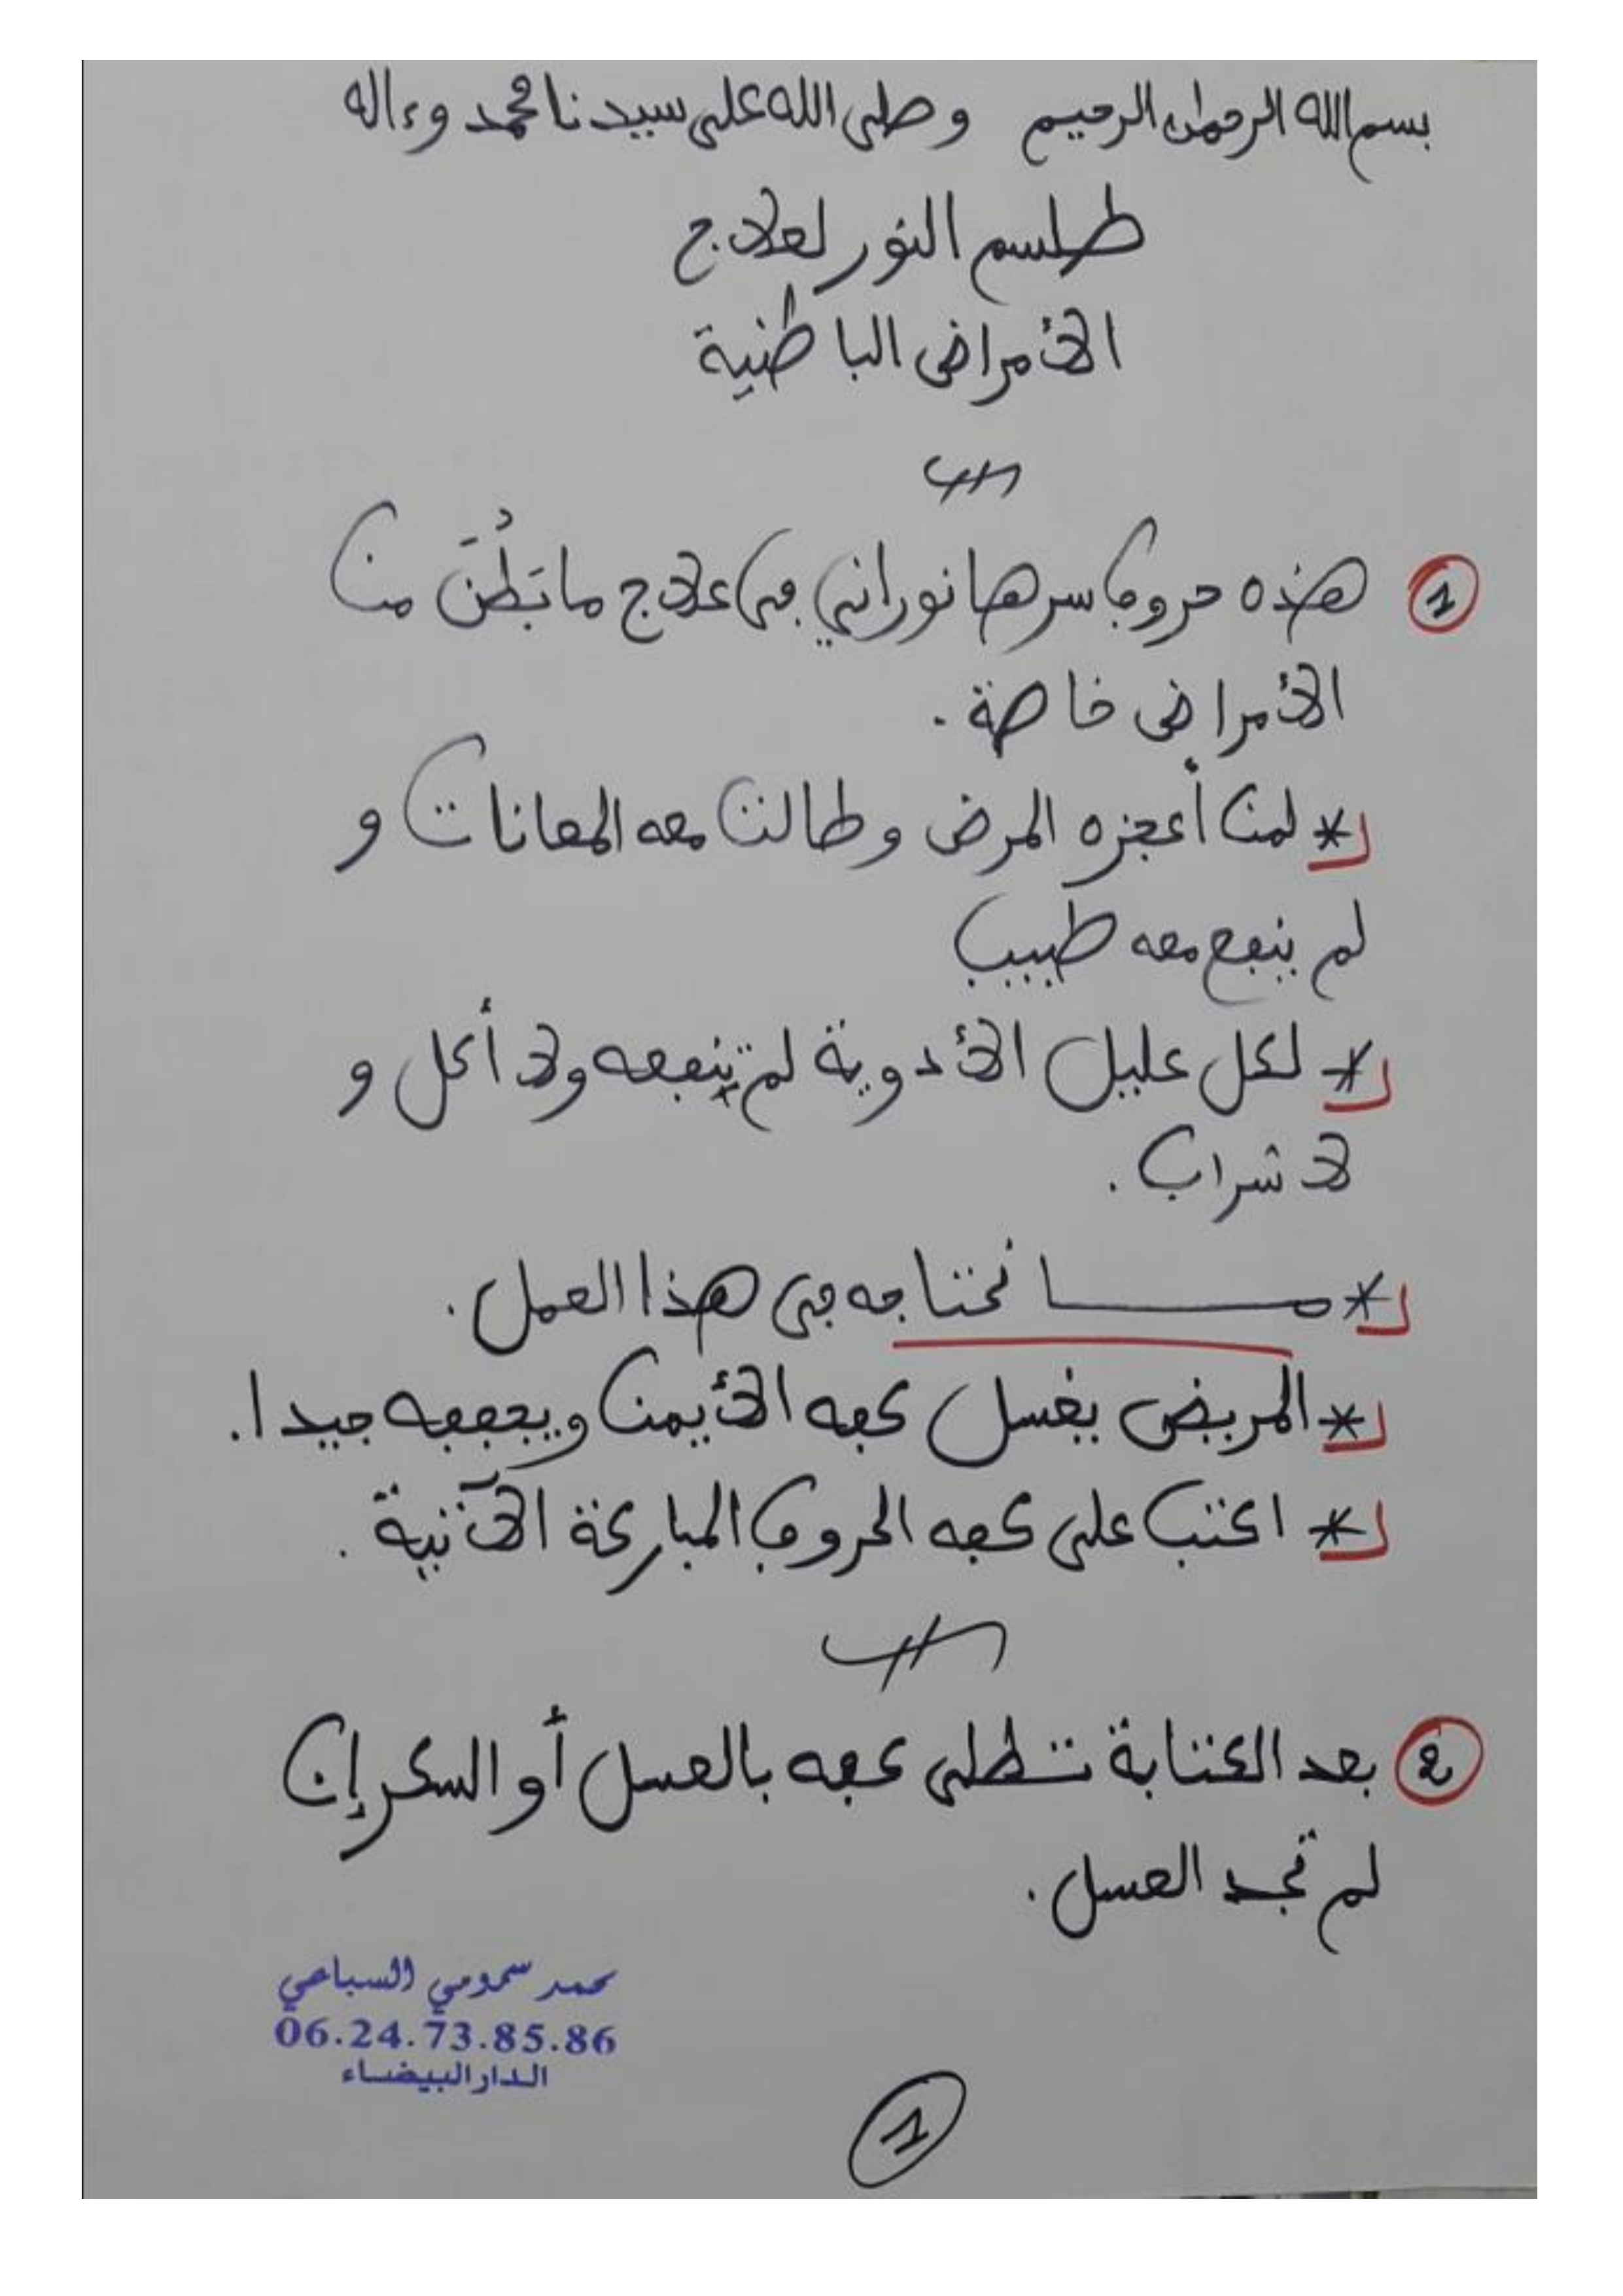 بسم الله الرحمان الرحيم وصلى الله على سيدنا محمد وءاله
طلسم النور لعلاج
الأمراض الباطنية
① هذه حروف سرها نوراني في علاج ما بَطُنَ من
الأمراض خاصة.
* لمن أعجزه المرض وطالت معه المعانات و
لم ينفع معه طبيب
* لكل عليل الأدوية لم تنفعه ولا أكل و
لا شراب.
* مــــا نحتاجه في هذا العمل.
* المريض يغسل كفه الأيمن ويجففه جيدا.
* اكتب على كفه الحروف المباركة الآتية.
② بعد الكتابة تطلى كفه بالعسل أو السكر إن
لم تجد العسل.
محمد سمومي السباعي
06.24.73.85.86
الدار البيضاء
1